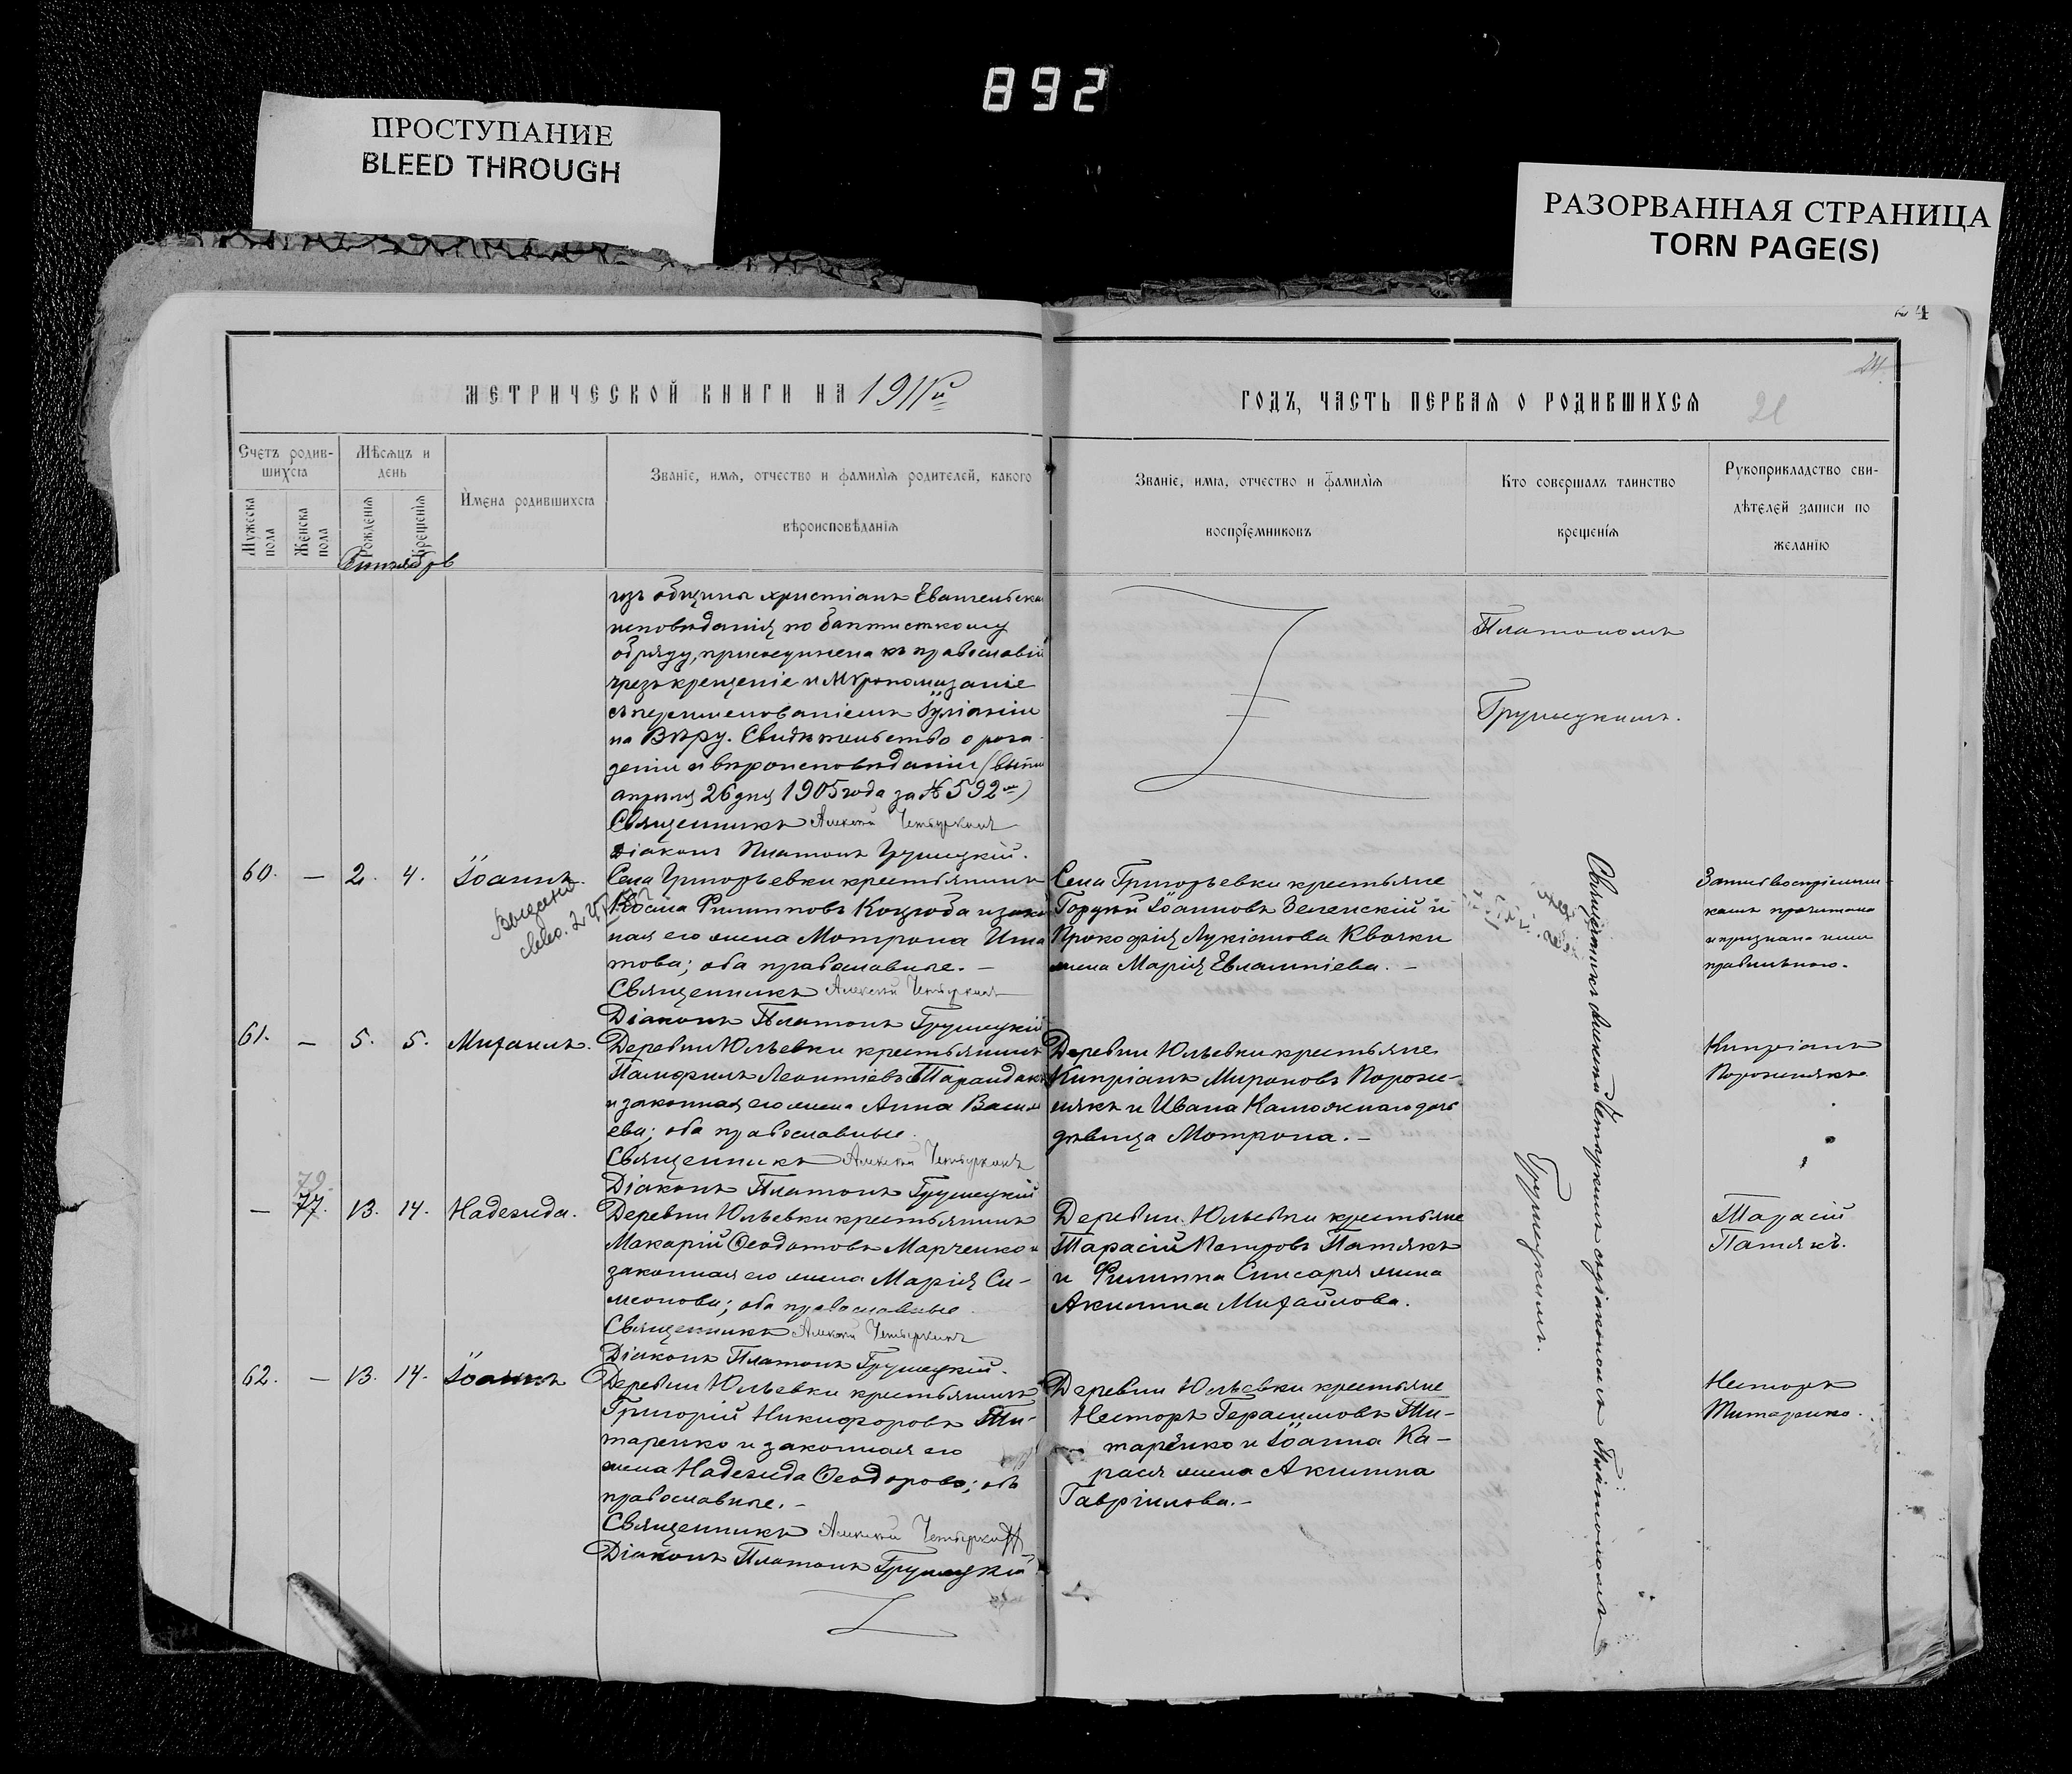 892
ПРОСТУПАНИЕ
BLEED THROUGH
РАЗОРВАННАЯ СТРАНИЦА
TORN PAGE(S)
24
МЕТРИЧЕСКОЙ КНИГИ НА 1911й
Счетъ родив-
шихсіа
Мѣсяцъ и
день
Имена родившихсіа
Званіе, имя, отчество и фамилія родителей, какого
вѣроисповѣданія
Мужеска
пола
Женска
пола
Рожденія
Крещенія
изъ общины христіанъ Евангельска
исповѣданія по баптисткому
обряду, присоединена къ православію
чрезъ крещеніе и Мѵропомазаніе
съ переименованіемъ Іуліаніи
на Вѣру. Свидѣтельство о рож
деніи и вѣроисповѣданіи
апрѣля 26 дня 1905 года за № 592
Священникъ Алексій Четыркинъ
Діаконъ Платонъ Грушецкій.
60. — 2. 4. Іоаннъ.
Села Григорьевки крестьянинъ
Косма Филипповъ Коцюба и зако
ная его жена Мотрона Игна
това; оба православные. —
Священникъ Алексій Четыркинъ
Діаконъ Платонъ Грушецкій
61. — 5. 5. Михаилъ.
Деревни Юльевки крестьянинъ
Памфилъ Леонтіевъ
и законная его жена Анна Васил
ева; оба православные.
Священникъ Алексій Четыркинъ
Діаконъ Платонъ Грушецкій
79.
— 77. 13. 14. Надежда.
Деревни Юльевки крестьянинъ
Макарій Ѳеодотовъ Марченко и
законная его жена Марія Си-
меонова; оба православные.
Священникъ Алексій Четыркинъ
Діаконъ Платонъ Грушецкій.
62. — 13. 14. Іоаннъ
Деревни Юльевки крестьянинъ
Григорій Никифоровъ Ти-
таренко и законная его
жена Надежда Ѳеодорова; оба
православные. —
Священникъ Алексій Четыркинъ
Діаконъ Платонъ Грушецкій
ГОДЪ, ЧАСТЬ ПЕРВАЯ О РОДИВШИХСЯ
21
Званіе, имія, отчество и фамилія
воспріемниковъ
Кто совершалъ таинство
крещенія
Рукоприкладство сви-
дѣтелей записи по
желанію
Платономъ
Грушецкимъ.
Села Григорьевки крестьяне
Іоанновъ Зеленскій и
Прокофія Лукіанова Квочки
жена Марія Евлампіева. —
Запись воспріемни-
камъ прочитана
и признана ими
правильною.
Деревни Юльевки крестьяне
Кипріанъ Мироновъ Порохн-
някъ и Ивана дочь
дѣвица Мотрона. —
Кипріанъ
Деревни Юльевки крестьяне
Тарасій Петровъ Патякъ
и Филиппа Слисаря жена
Акилина Михайлова.
Тарасій
Патякъ.
Деревни Юльевки крестьяне
Несторъ Герасимовъ Ти-
таренко и Іоанна Ка-
рася жена Акилина
Гавріилова. —
Несторъ
Титаренко.
Священникъ Алексій Четыркинъ съ діакономъ Платономъ
Грушецкимъ.